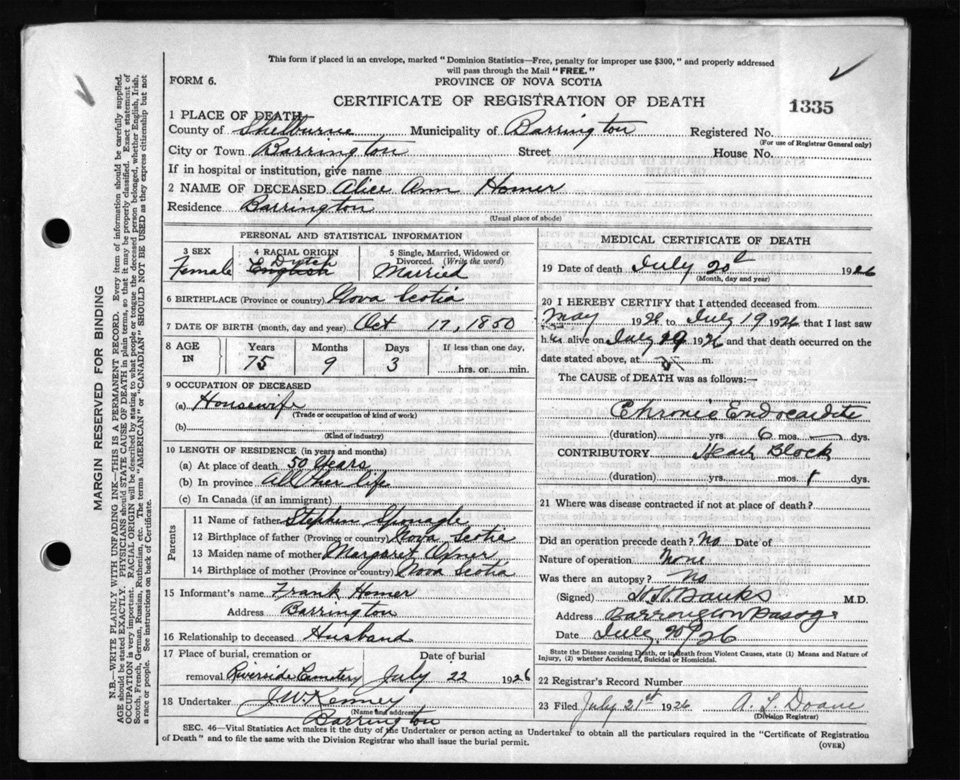 This form if placed in an envelope, marked "Dominion Statistics—Free, penalty for improper use $300," and properly addressed
will pass through the Mail "FREE."
FORM 6.
PROVINCE OF NOVA SCOTIA
CERTIFICATE OF REGISTRATION OF DEATH
1335
1 PLACE OF DEATH
County of Shelburne Municipality of Barrington Registered No.
(For use of Registrar General only)
City or Town Barrington Street House No.
If in hospital or institution, give name
2 NAME OF DECEASED Alice Ann Homer
Residence Barrington
(Usual place of abode)
PERSONAL AND STATISTICAL INFORMATION
3 SEX
Female
4 RACIAL ORIGIN
Dutch
English
5 Single, Married, Widowed or
Divorced. (Write the word)
Married
6 BIRTHPLACE (Province or country) Nova Scotia
7 DATE OF BIRTH (month, day and year) Oct 17, 1850
8 AGE IN
Years Months Days If less than one day,
75 9 3 hrs. or min.
9 OCCUPATION OF DECEASED
(a) Housewife
(Trade or occupation of kind of work)
(b)
(Kind of industry)
10 LENGTH OF RESIDENCE (in years and months)
(a) At place of death 50 Years
(b) In province All Other life
(c) In Canada (if an immigrant)
Parents
11 Name of father Stephen
12 Birthplace of father (Province or country) Nova Scotia
13 Maiden name of mother Margaret
14 Birthplace of mother (Province or country) Nova Scotia
15 Informant's name Frank Homer
Address Barrington
16 Relationship to deceased Husband
17 Place of burial, cremation or Date of burial
removal Riverside Cemetery July 22 1926
18 Undertaker J W Kenney
(Name and address)
Barrington
MEDICAL CERTIFICATE OF DEATH
19 Date of death July 20th 1926
(Month, day and year)
20 I HEREBY CERTIFY that I attended deceased from
May 1926 to July 19 1926 that I last saw
her alive on July 19 1926 and that death occurred on the
date stated above, at m.
The CAUSE OF DEATH was as follows:—
Chronic Endocarditis
(duration) yrs. 6 mos. — dys.
CONTRIBUTORY Heart Block
(duration) yrs. mos. 1 dys.
21 Where was disease contracted if not at place of death?
Did an operation precede death? No Date of
Nature of operation None
Was there an autopsy? No
(Signed) Banks M.D.
Address Barrington Passage
Date July 20/26
State the Disease causing Death, or in Death from Violent Causes, state (1) Means and Nature of
Injury, (2) whether Accidental, Suicidal or Homicidal.
22 Registrar's Record Number
23 Filed July 21st 1926 A. L. Doane
(Division Registrar)
SEC. 46—Vital Statistics Act makes it the duty of the Undertaker or person acting as Undertaker to obtain all the particulars required in the "Certificate of Registration
of Death" and to file the same with the Division Registrar who shall issue the burial permit.
(OVER)
MARGIN RESERVED FOR BINDING
N.B.—WRITE PLAINLY WITH UNFADING INK—THIS IS A PERMANENT RECORD. Every item of information should be carefully supplied.
AGE should be stated EXACTLY. PHYSICIANS should STATE CAUSE OF DEATH in plain terms, so that it may be properly classified. Exact statement of
OCCUPATION is very important. RACIAL ORIGIN will be described by stating to what people or tongue the deceased person belonged, whether English, Irish,
Scotch, French, German, Russian, Ruthenian, etc. The terms "AMERICAN" or "CANADIAN" SHOULD NOT BE USED as they express citizenship but not
a race or people. See instructions on back of Certificate.